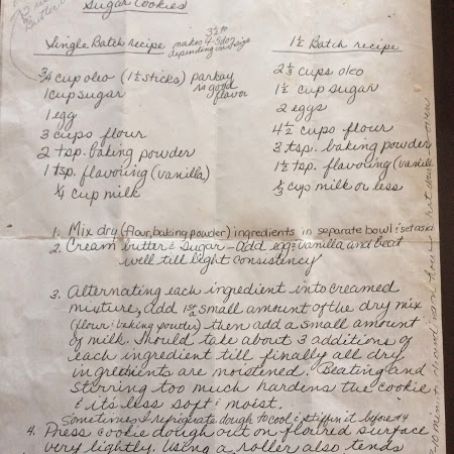 Sugar Cookies
Single Batch recipe makes 3½ to 4-5 doz depending on size
¾ cup oleo (1½ sticks) parkay
1 cup sugar has good flavor
1 egg
3 cups flour
2 tsp. baking powder
1 tsp. flavoring (vanilla)
¼ cup milk
1½ Batch recipe
2⅓ cups oleo
1½ cup sugar
2 eggs
4½ cups flour
3 tsp. baking powder
1½ tsp. flavoring (vanilla
⅓ cup milk or less
1. Mix dry (flour, baking powder) ingredients in separate bowl & set aside
2. Cream butter & sugar - add egg & vanilla and beat
well till light consistency
3. Alternating each ingredient into creamed
mixture, add 1st a small amount of the dry mix
(flour & baking powder) then add a small amount
of milk. Should take about 3 additions of
each ingredient till finally all dry
ingredients are moistened. Beating and
stirring too much hardens the cookie
& its less soft & moist.
Sometimes I refrigerate dough to cool & stiffen it before #4
4. Press cookie dough out on floured surface
very lightly. Using a roller also tends